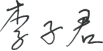 李子君